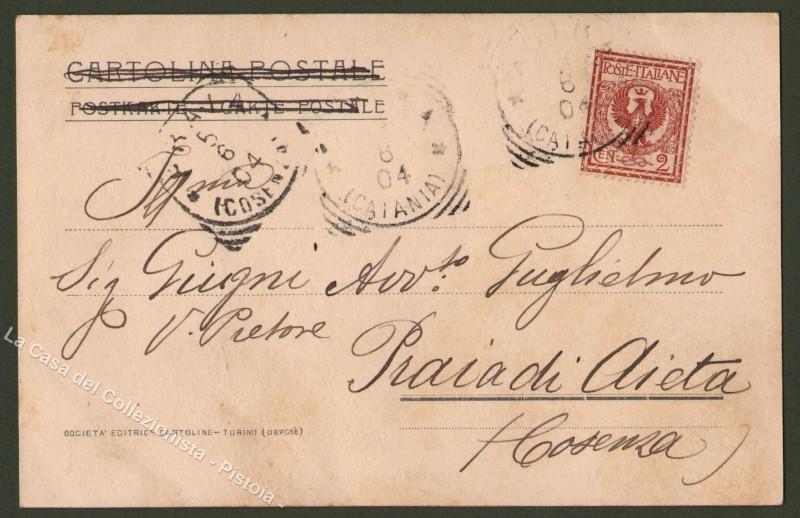 CARTOLINA POSTALE
POSTKARTE - CARTE POSTALE
POSTE ITALIANE
CEN. 2
6
04
(CATANIA)
6
04
(CATANIA)
5
6
04
(COSENZA)
Sig Giugni Avv.to Guglielmo
V. Pretore
Praia di Aieta
(Cosenza)
SOCIETA' EDITRICE CARTOLINE - TORINO (DEPOSÈ)
La Casa del Collezionista - Pistoia -